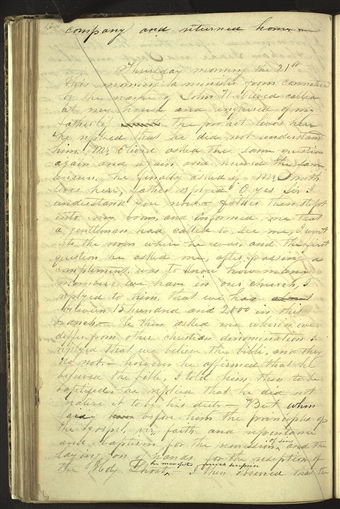 company and returned home
Thursday morning the 21st
This morning a minister from
of the name of John W. Olived called
at my house and enquired of my
Father if the prophet lived here
he replied that he did not understand
him. Mr. Olived asked the same question
again and again and received the same
answer. He finally asked if Mr Smith
lives here, Father replyed O yes Sir I
understand you now. Father then stept
into my room, and informed me that
a gentleman had called to see me, I went
into the room where he was, and the first
question he asked me, after passing a
compliment, was to know how many
members we have in our church, I
replyed to him, that we had about
between 15 hundred and 2000 in this
branch. He then asked me wherein we
differ from other christian denomination I
replyed that we believe the bible, and they
do not. however he affirmed that he
believed the bible, I told him then to be
baptised, he replied that he did not
realise it to be his duty. But when
laid before him the principles of
the Gospel, viz. faith and repentance
and baptism for the remission of sins, and the
laying on of hands for the reception of
the Holy Ghost, he manifested much surprise I then observed that the